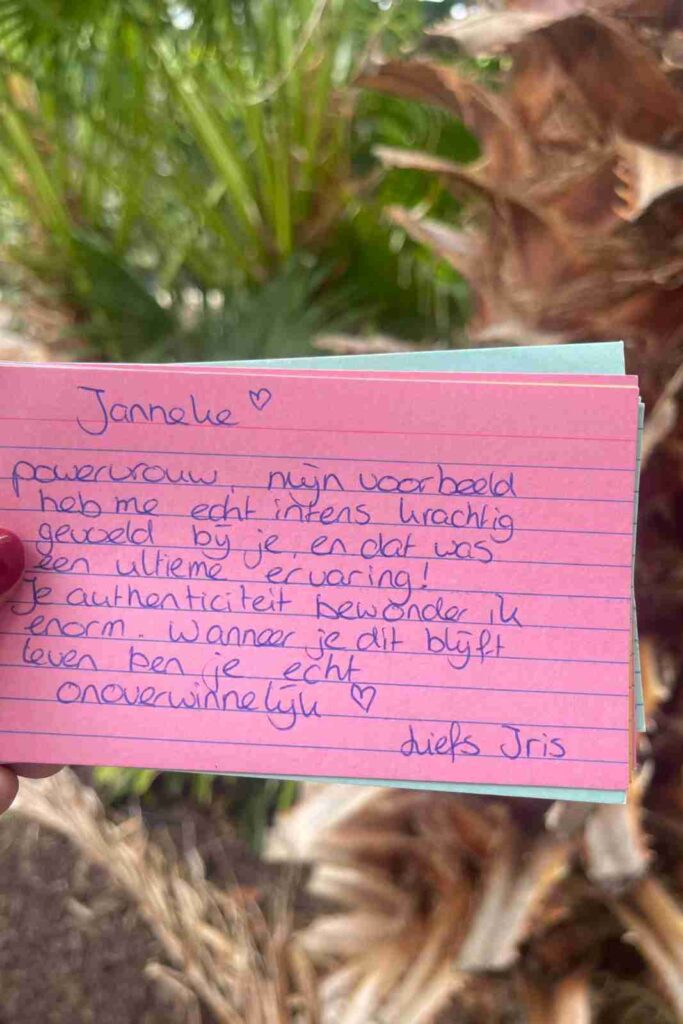 Janneke ♡
powervrouw, mijn voorbeeld
heb me echt intens krachtig
gevoeld bij je, en dat was
een ultieme ervaring!
Je authenticiteit bewonder ik
enorm. Wanneer je dit blijft
leven ben je echt
onoverwinnelijk ♡
Liefs Iris